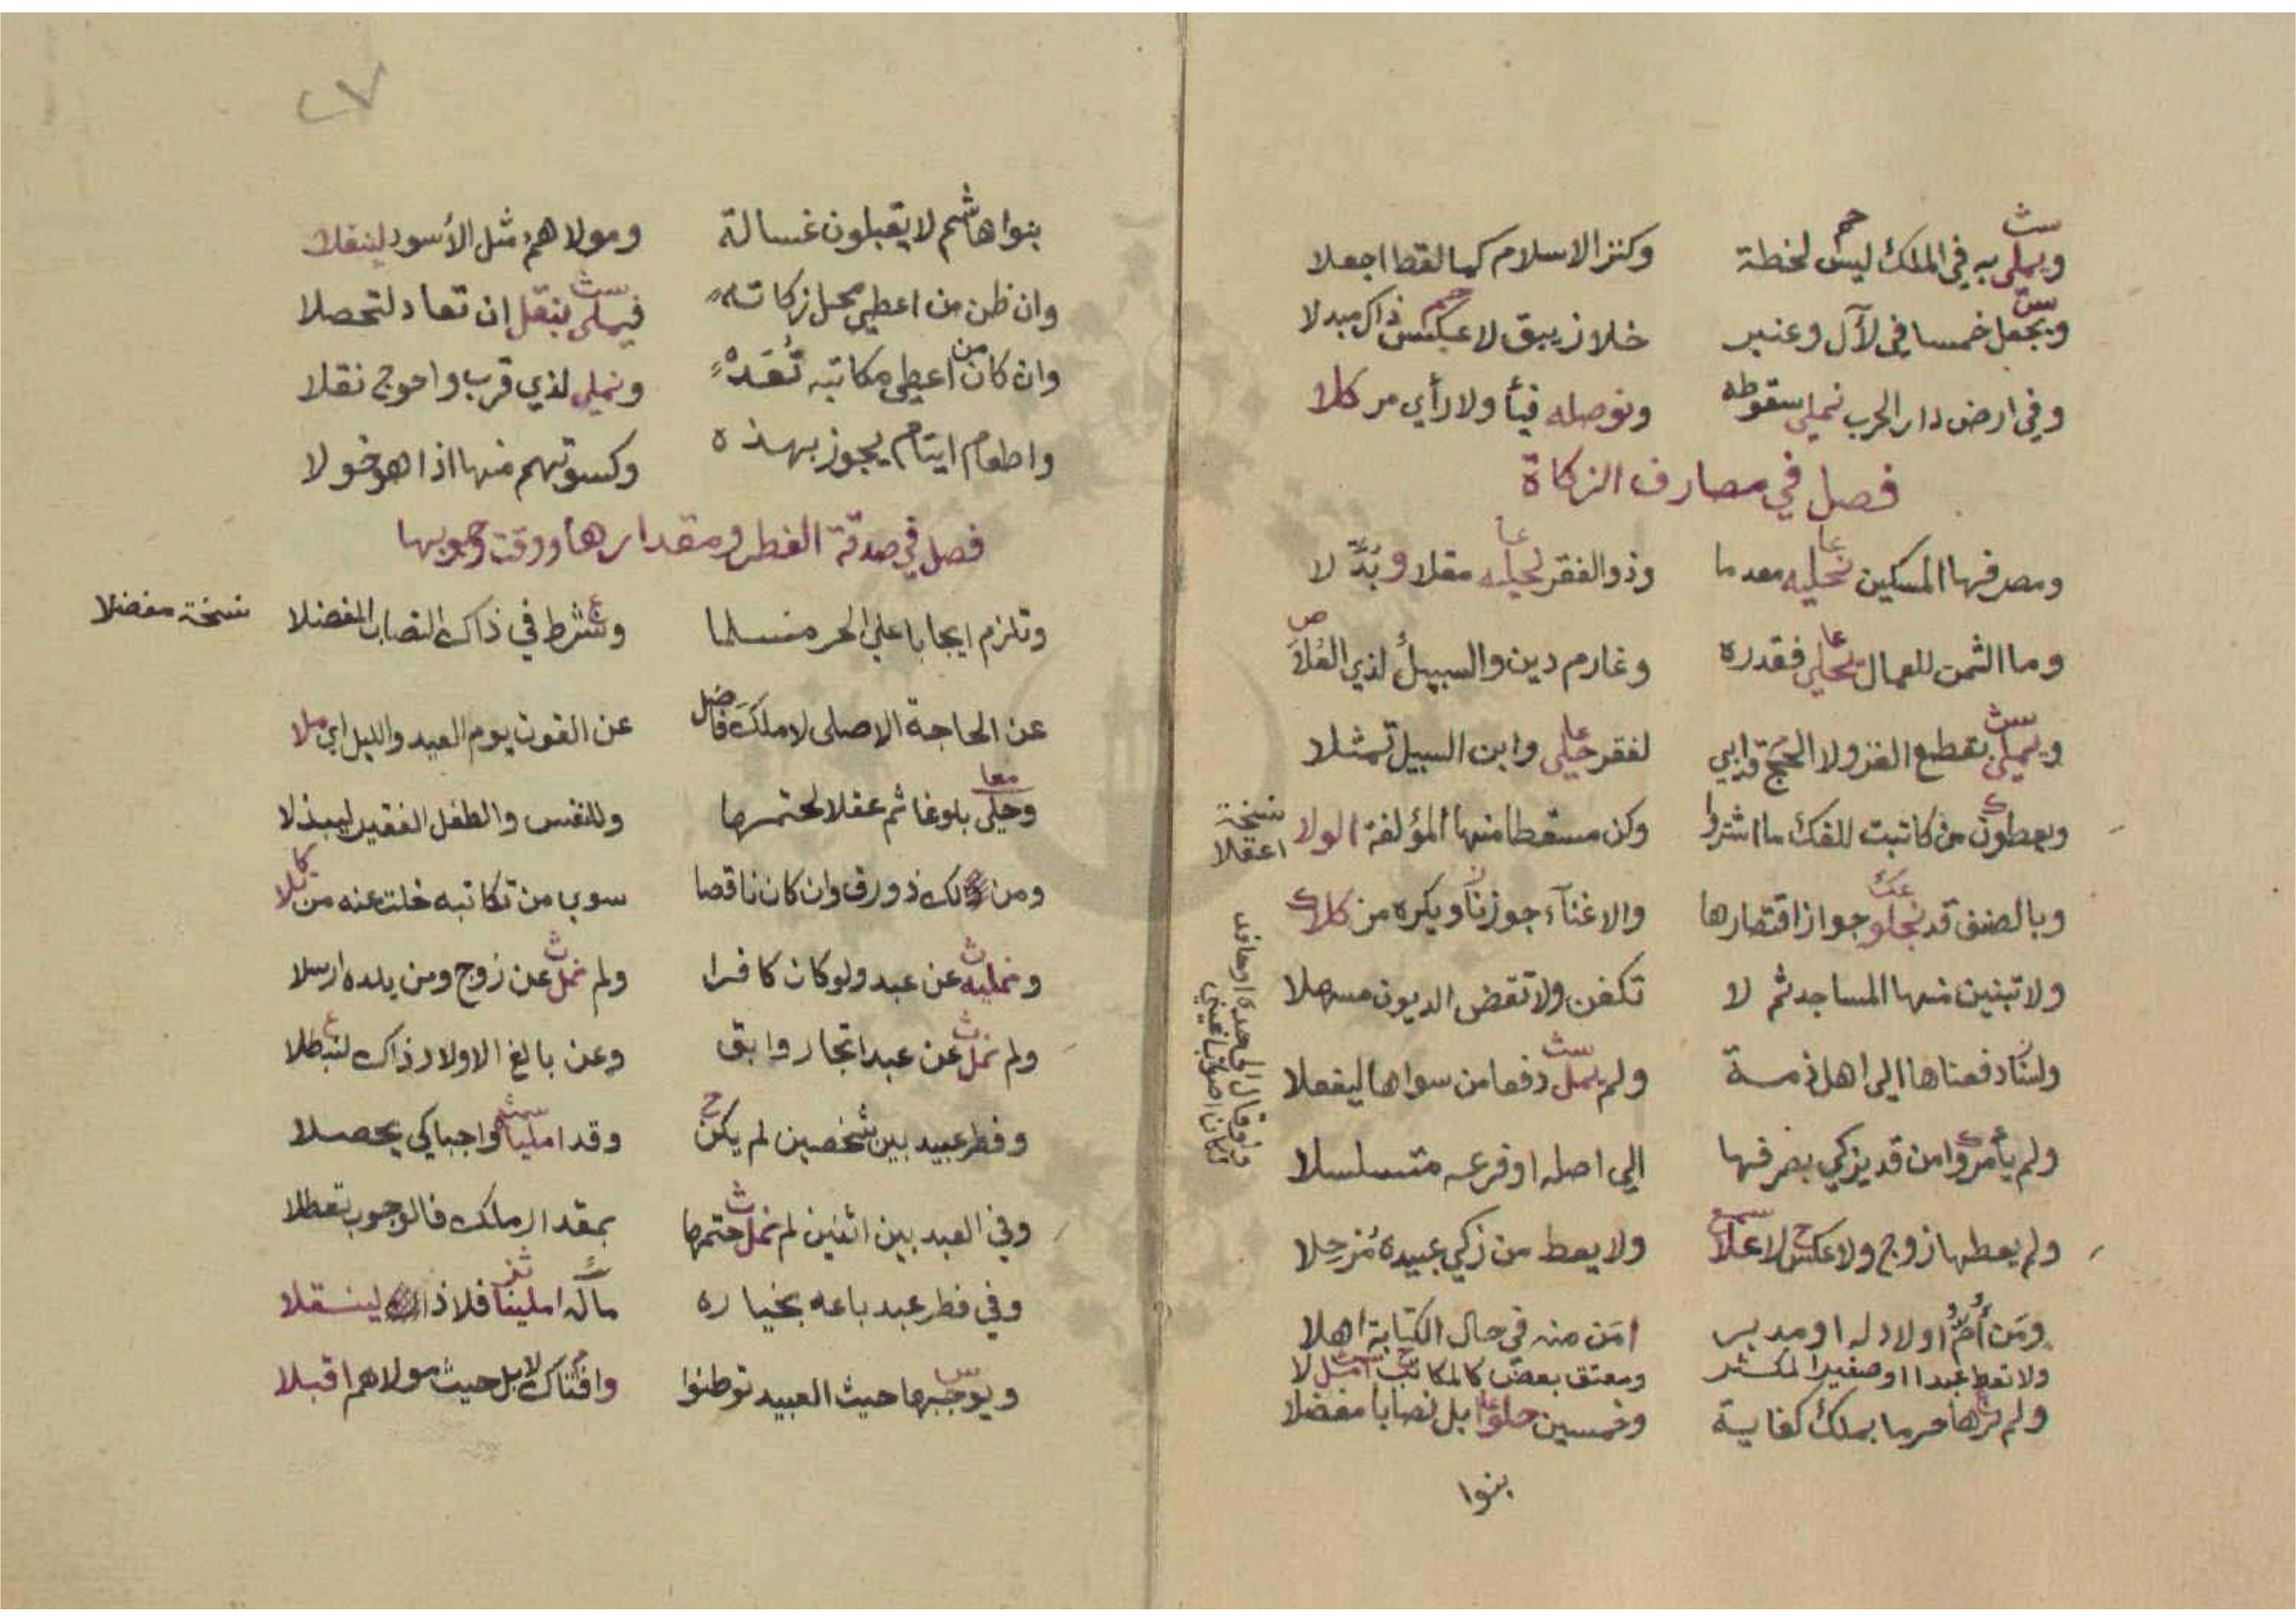 ويملى به في الملك ليس لخطة وكنز الاسلام كما لقط اجعلا
ويجعل خمسا في لآل وعنبر خلا زيبق لا عكس ذاك مبدلا
وفي ارض دار الحرب نملي سقوطه ونوصله فيأ ولا رأي مر كلا
فصل في مصارف الزكاة
ومصرفها المسكين نحليه معدما وذو الفقر نحليه مقلا وبدلا
وما الثمن للعمال نحلي فقدره وغارم دين والسبيل لذي الفلا
ويملى بقطع الغزو لا الحج قد ابي لفقر حلي وابن السبيل تمثلا
ويعطون من كاتبت للفك ما اشترا وكن مسقطا منها المؤلفة الولا
نسخة
اعقلا
وبالصنف قد نجلو جواز اقتصارها والاغناء جوزنا ويكره من كلا
ولا تبنين منها المساجد ثم لا تكفن ولا تقض الديون مسهلا
ولسنا دفعناها الى اهل ذمة ولم يمل دفعا من سواها ليفعلا
ولم يأمروا من قد يزكي بصرفها الي اصله او فرعه متسلسلا
ولم يعطها زوج ولا عكس لا علا ولا يعط من زكي عبيده مزحلا
ومن أم اولاد له او مدبر امن منه في حال الكتابة اهلا
ولا تعط عبدا او صغيرا لمكثر ومعتق بعض كالمكاتب امل لا
ولم نرها حرما بملك كفاية وخمسين حلوا بل نصابا مفضلا
بنوا
٢٧
بنوا هاشم لا يقبلون غسالة ومولاهم مثل الأسود لينقلا
وان ظن من اعطي محل زكاته فيملى بنقل ان تعاد لتحصلا
وان كان من اعطي مكاتبه تعد ونملي لذي قرب واحوج نقلا
واطعام ايتام يجوز بهذه وكسوتهم منها اذا هو خولا
فصل في صدقة الفطر ومقدارها ووقت وجوبها
وتلزم ايجابا علي الحر مسلما ونشرط في ذاك النصاب المفضلا
نسخة مفضلا
عن الحاجة الاصلى لا ملك فاضل عن القوت يوم العيد والليل اي ملا
وحلي بلوغا ثم عقلا لحتمها وللنفس والطفل الفقير ليبذلا
ومن ذو رق وان كان ناقصا سوي من تكاتبه خلت عنه من كلا
ونمليه عن عبد ولو كان كافرا ولم نمل عن زوج ومن يلده ارسلا
ولم نمل عن عبد اتجار وابق وعن بالغ الاولاد ذاك لنبطلا
وفطر عبيد بين شخصين لم يكن وقد امليا واجبا كي يحصلا
وفي العبد بين اثنين لم نمل حتمها بمقدار ملك فالوجوب تعطلا
وفي فطر عبد باعه بخياره مآله املينا فلا ذا لينقلا
ويوجبها حيث العبيد توطنوا وافتاك لا بل حيث مولاهم اقبلا